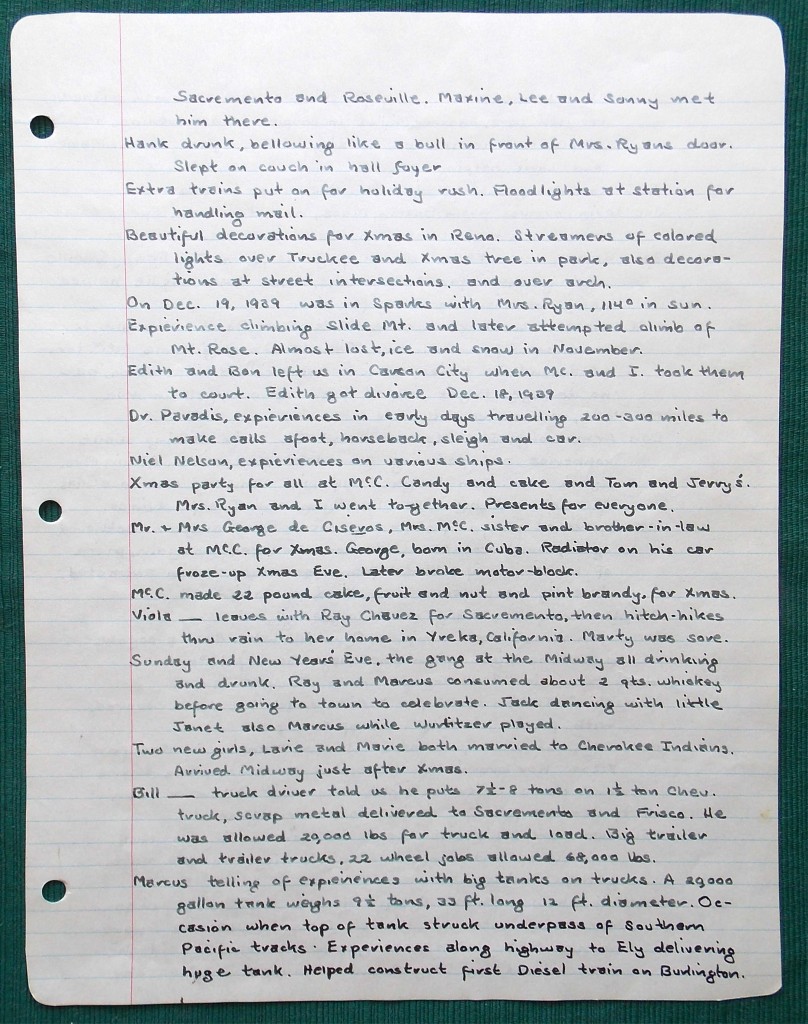 Sacremento and Roseville. Maxine, Lee and Sonny met
him there.
Hank drunk, bellowing like a bull in front of Mrs. Ryans door.
Slept on couch in hall foyer
Extra trains put on for holiday rush. Floodlights at station for
handling mail.
Beautiful decorations for Xmas in Reno. Streamers of colored
lights over Truckee and Xmas tree in park, also decora-
tions at street intersections, and over arch.
On Dec. 19, 1939 was in Sparks with Mrs. Ryan, 114° in sun.
Expierience climbing Slide Mt. and later attempted climb of
Mt. Rose. Almost lost, ice and snow in November.
Edith and Bon left us in Carson City when Mc. and I. took them
to court. Edith got divorce Dec. 18, 1939
Dr. Paradis, expieriences in early days travelling 200-300 miles to
make calls afoot, horseback, sleigh and car.
Niel Nelson, expieriences on various ships.
Xmas party for all at McC. Candy and cake and Tom and Jerry's.
Mrs. Ryan and I went to-gether. Presents for everyone.
Mr. + Mrs George de Ciseros, Mrs. McC. sister and brother-in-law
at McC. for Xmas. George, born in Cuba. Radiator on his car
froze-up Xmas Eve. Later broke motor-block.
McC. made 22 pound cake, fruit and nut and pint brandy, for Xmas.
Viola — leaves with Ray Chavez for Sacremento, then hitch-hikes
thru rain to her home in Yreka, California. Marty was sore.
Sunday and New Years' Eve, the gang at the Midway all drinking
and drunk. Ray and Marcus consumed about 2 qts. whiskey
before going to town to celebrate. Jack dancing with little
Janet also Marcus while Wurlitzer played.
Two new girls, Larie and Marie both married to Cherokee Indians.
Arrived Midway just after Xmas.
Bill — truck driver told us he puts 7½-8 tons on 1½ ton Chev.
truck, scrap metal delivered to Sacremento and Frisco. He
was allowed 29,000 lbs for truck and load. Big trailer
and trailer trucks, 22 wheel jobs allowed 68,000 lbs.
Marcus telling of expieriences with big tanks on trucks. A 29000
gallon tank weighs 9½ tons, 33 ft. long 12 ft. diameter. Oc-
casion when top of tank struck underpass of Southern
Pacific tracks. Experiences along highway to Ely delivering
huge tank. Helped construct first Diesel train on Burlington.